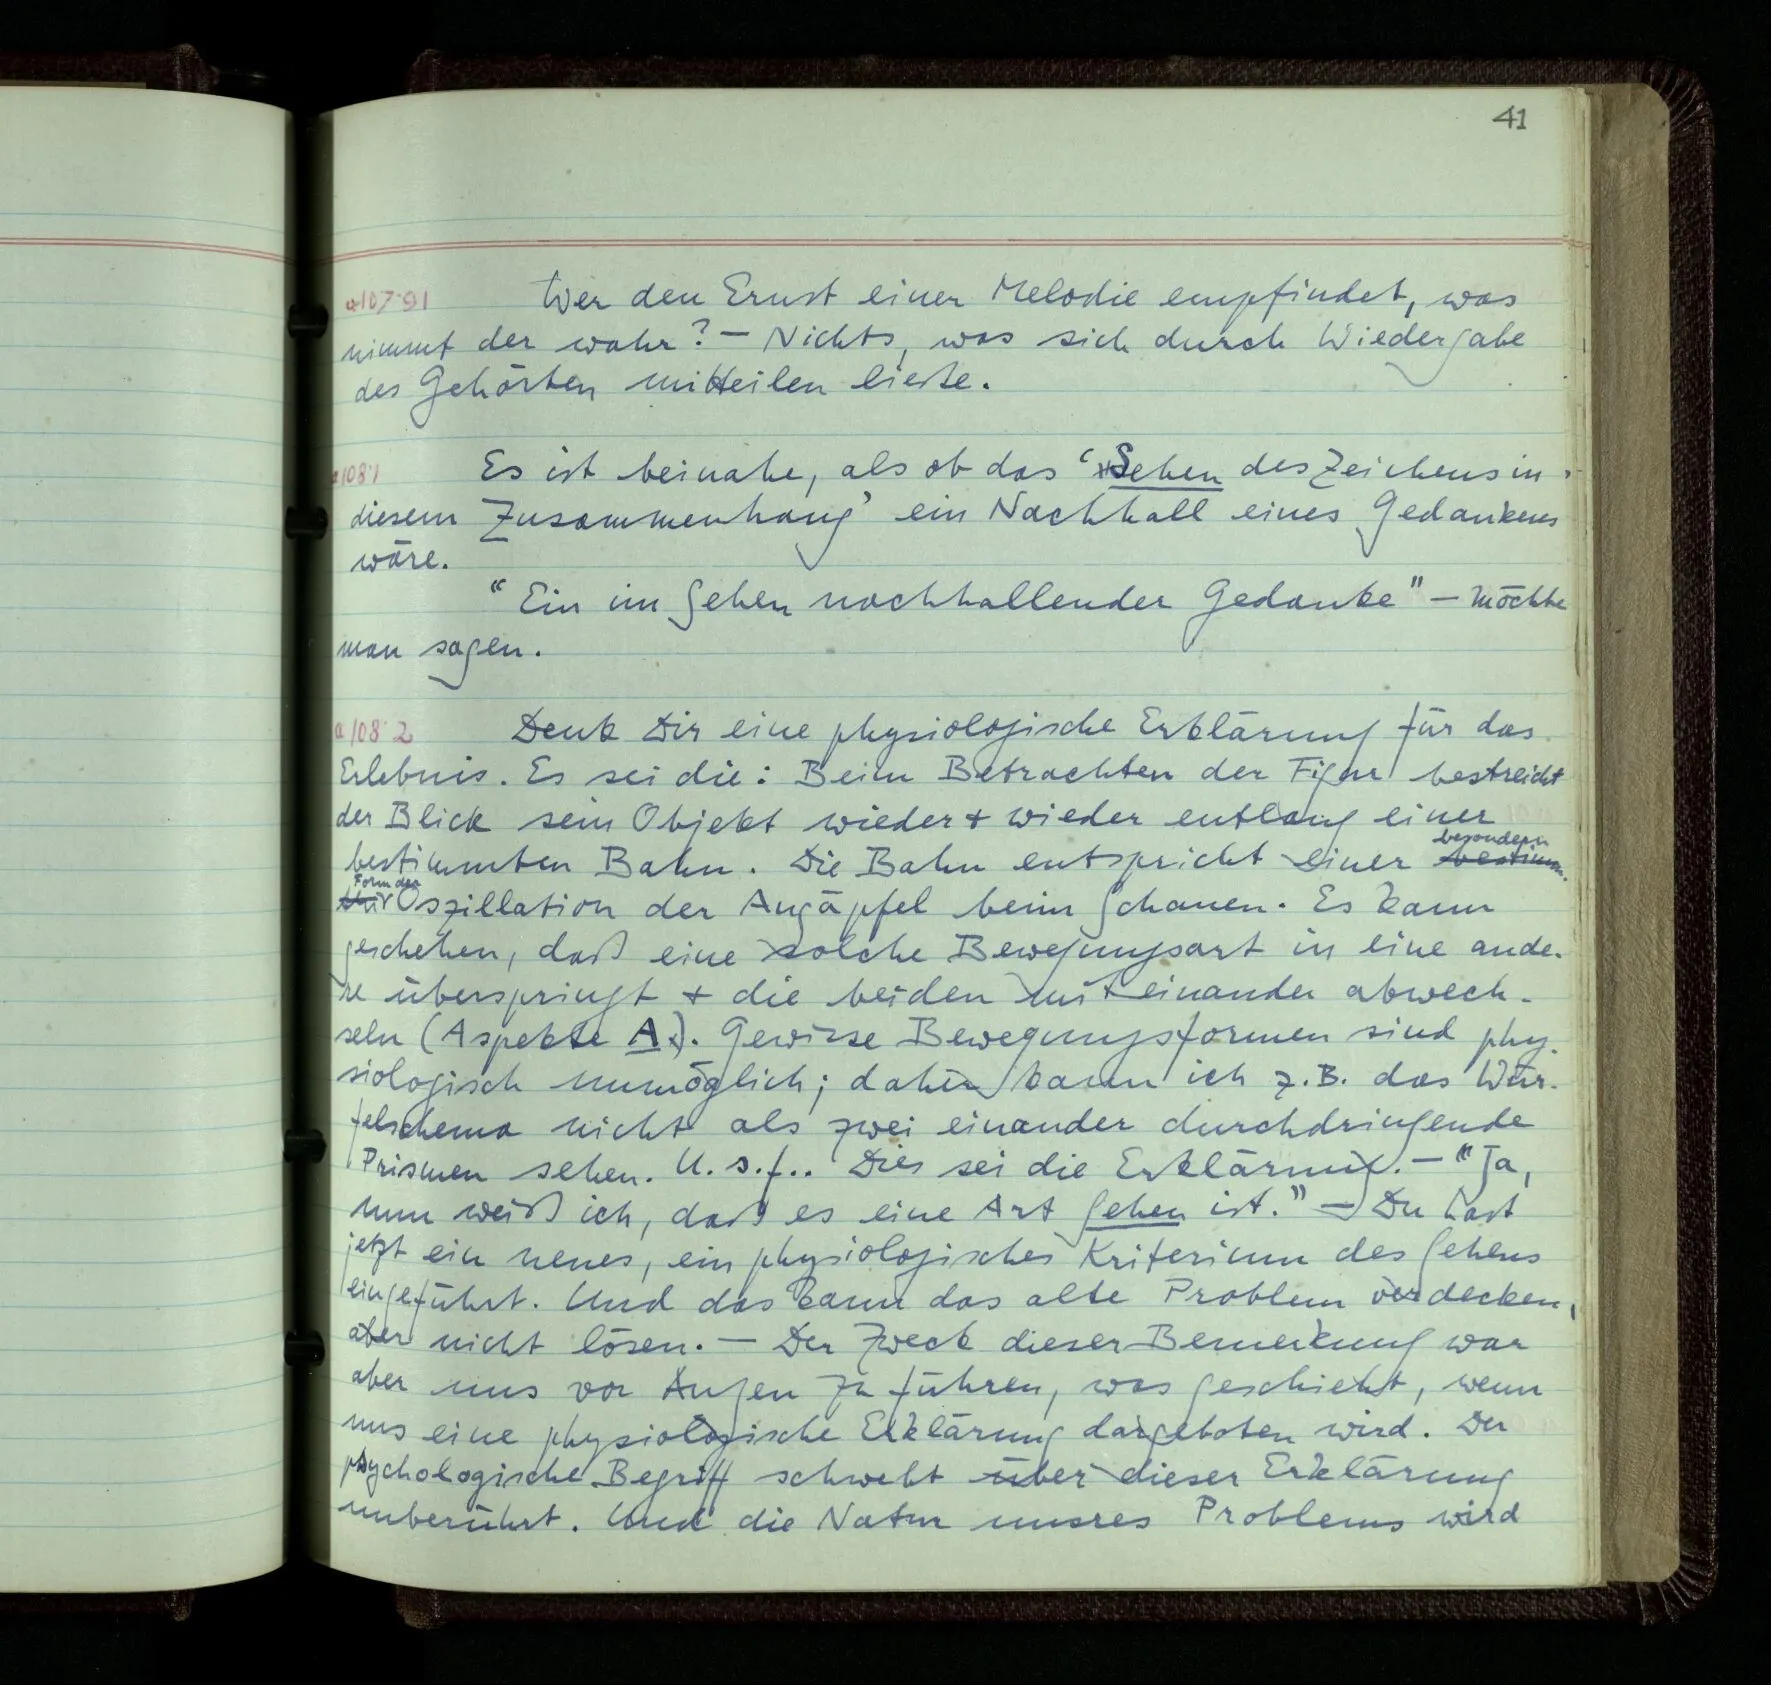 41
a107·91 Wer den Ernst einer Melodie empfindet, was
nimmt der wahr? – Nichts, was sich durch Wiedergabe
des Gehörten mitteilen ließe.
a108·1 Es ist beinahe, als ob das ‘Sehen des Zeichens in
diesem Zusammenhang’ ein Nachhall eines Gedankens
wäre.
“Ein im Sehen nachhallender Gedanke” – möchte
man sagen.
a108·2 Denk Dir eine physiologische Erklärung für das
Erlebnis. Es sei die: Beim Betrachten der Figur bestreicht
der Blick sein Objekt wieder + wieder entlang einer
besonderen
bestimmten Bahn. Die Bahn entspricht einer bestimm-
Form der
Oszillation der Augäpfel beim Schauen. Es kann
geschehen, daß eine solche Bewegungsart in eine ande-
re überspringt + die beiden mit einander abwech-
seln (Aspekte A.). Gewisse Bewegungsformen sind phy-
siologisch unmöglich; daher kann ich z.B. das Wür-
felschema nicht als zwei einander durchdringende
Prismen sehen. U.s.f.. Dies sei die Erklärung. – “Ja,
nun weiß ich, daß es eine Art Sehen ist.” – Du hast
jetzt ein neues, ein physiologisches Kriterium des Sehens
eingeführt. Und das kann das alte Problem verdecken,
aber nicht lösen. – Der Zweck dieser Bemerkung war
aber uns vor Augen zu führen, was geschieht, wenn
uns eine physiologische Erklärung dargeboten wird. Der
psychologische Begriff schwebt über dieser Erklärung
unberührt. Und die Natur unsres Problems wird